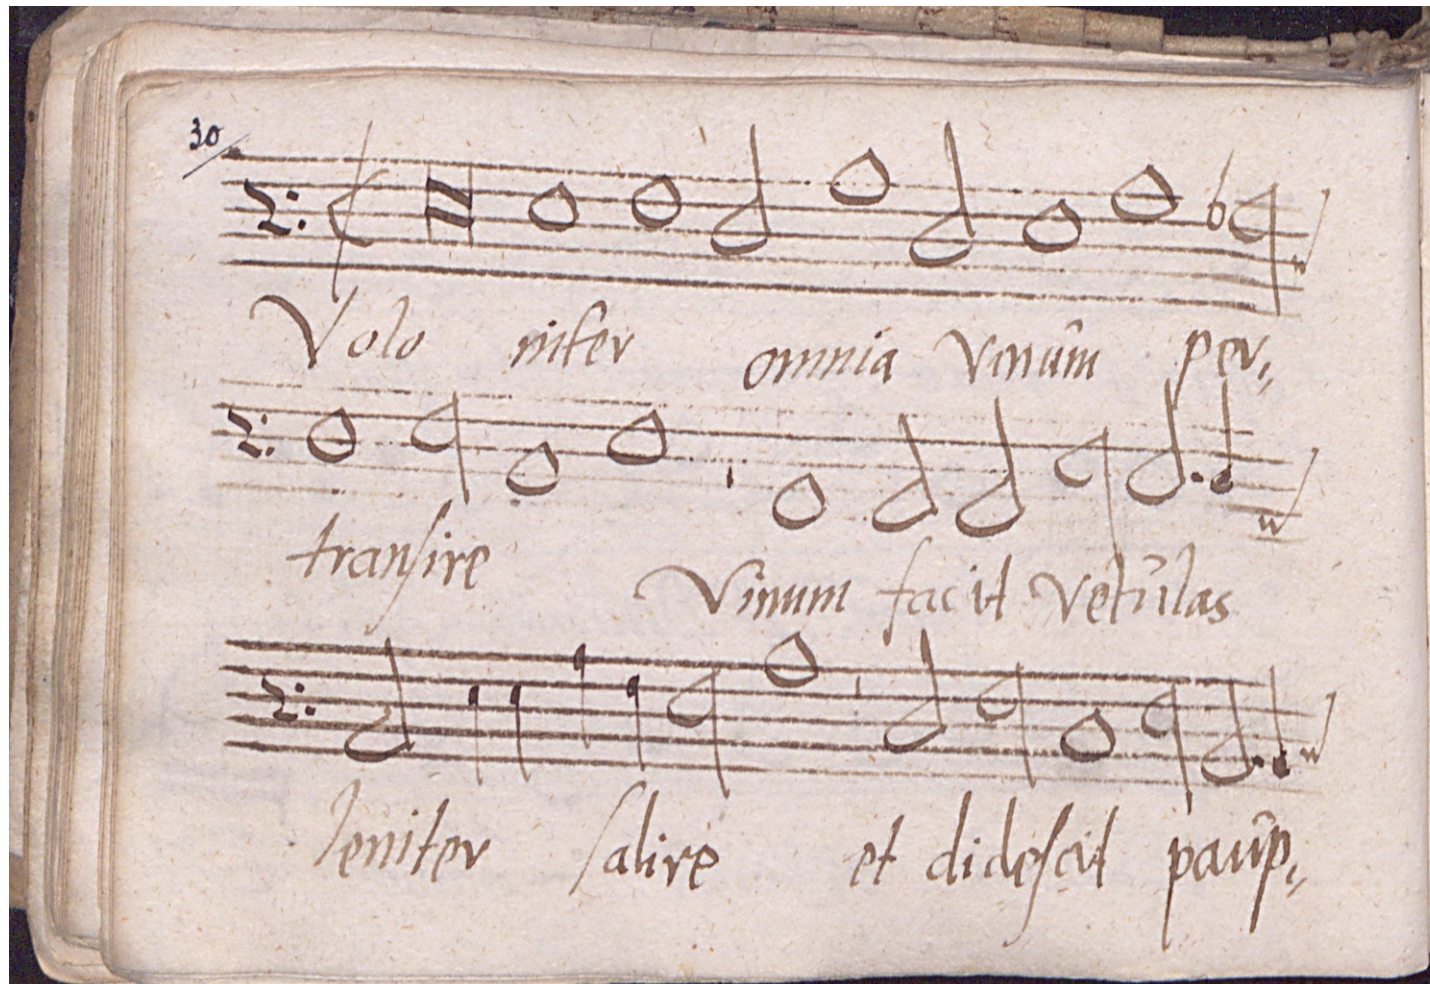 30
Volo niter omnia vinûm per,,
transire Vinum facit vetûlas
leniter salire et didescit paûp,,